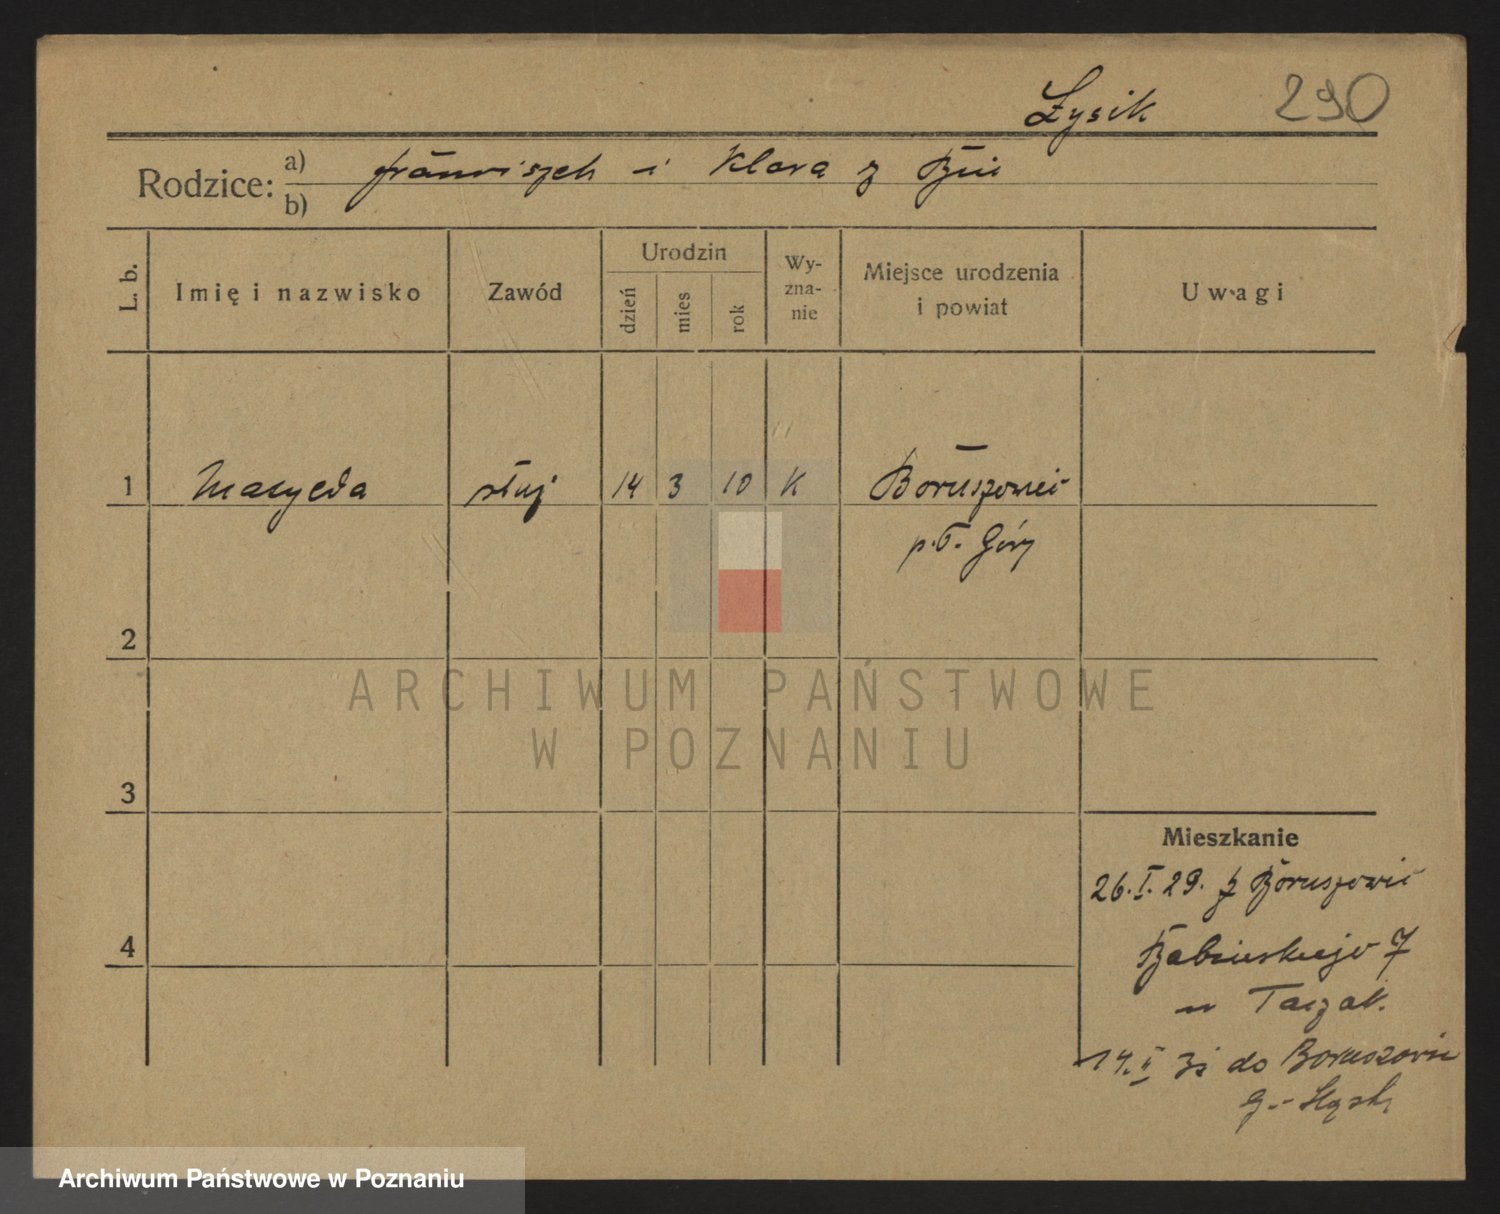 Łysik 290
Rodzice: a) Franciszek i Klara z
b)
L. b. Imię i nazwisko Zawód Urodzin dzień mies rok Wyznanie Miejsce urodzenia i powiat Uwagi
1 służ 14 3 10 K Boruszowic
p. T. Góry
2
ARCHIWUM PAŃSTWOWE
W POZNANIU
3
Mieszkanie
26.I.29. z Boruszowic
4 7
u Taczak.
14.II do Boruszowic
G.-Śląsk
Archiwum Państwowe w Poznaniu